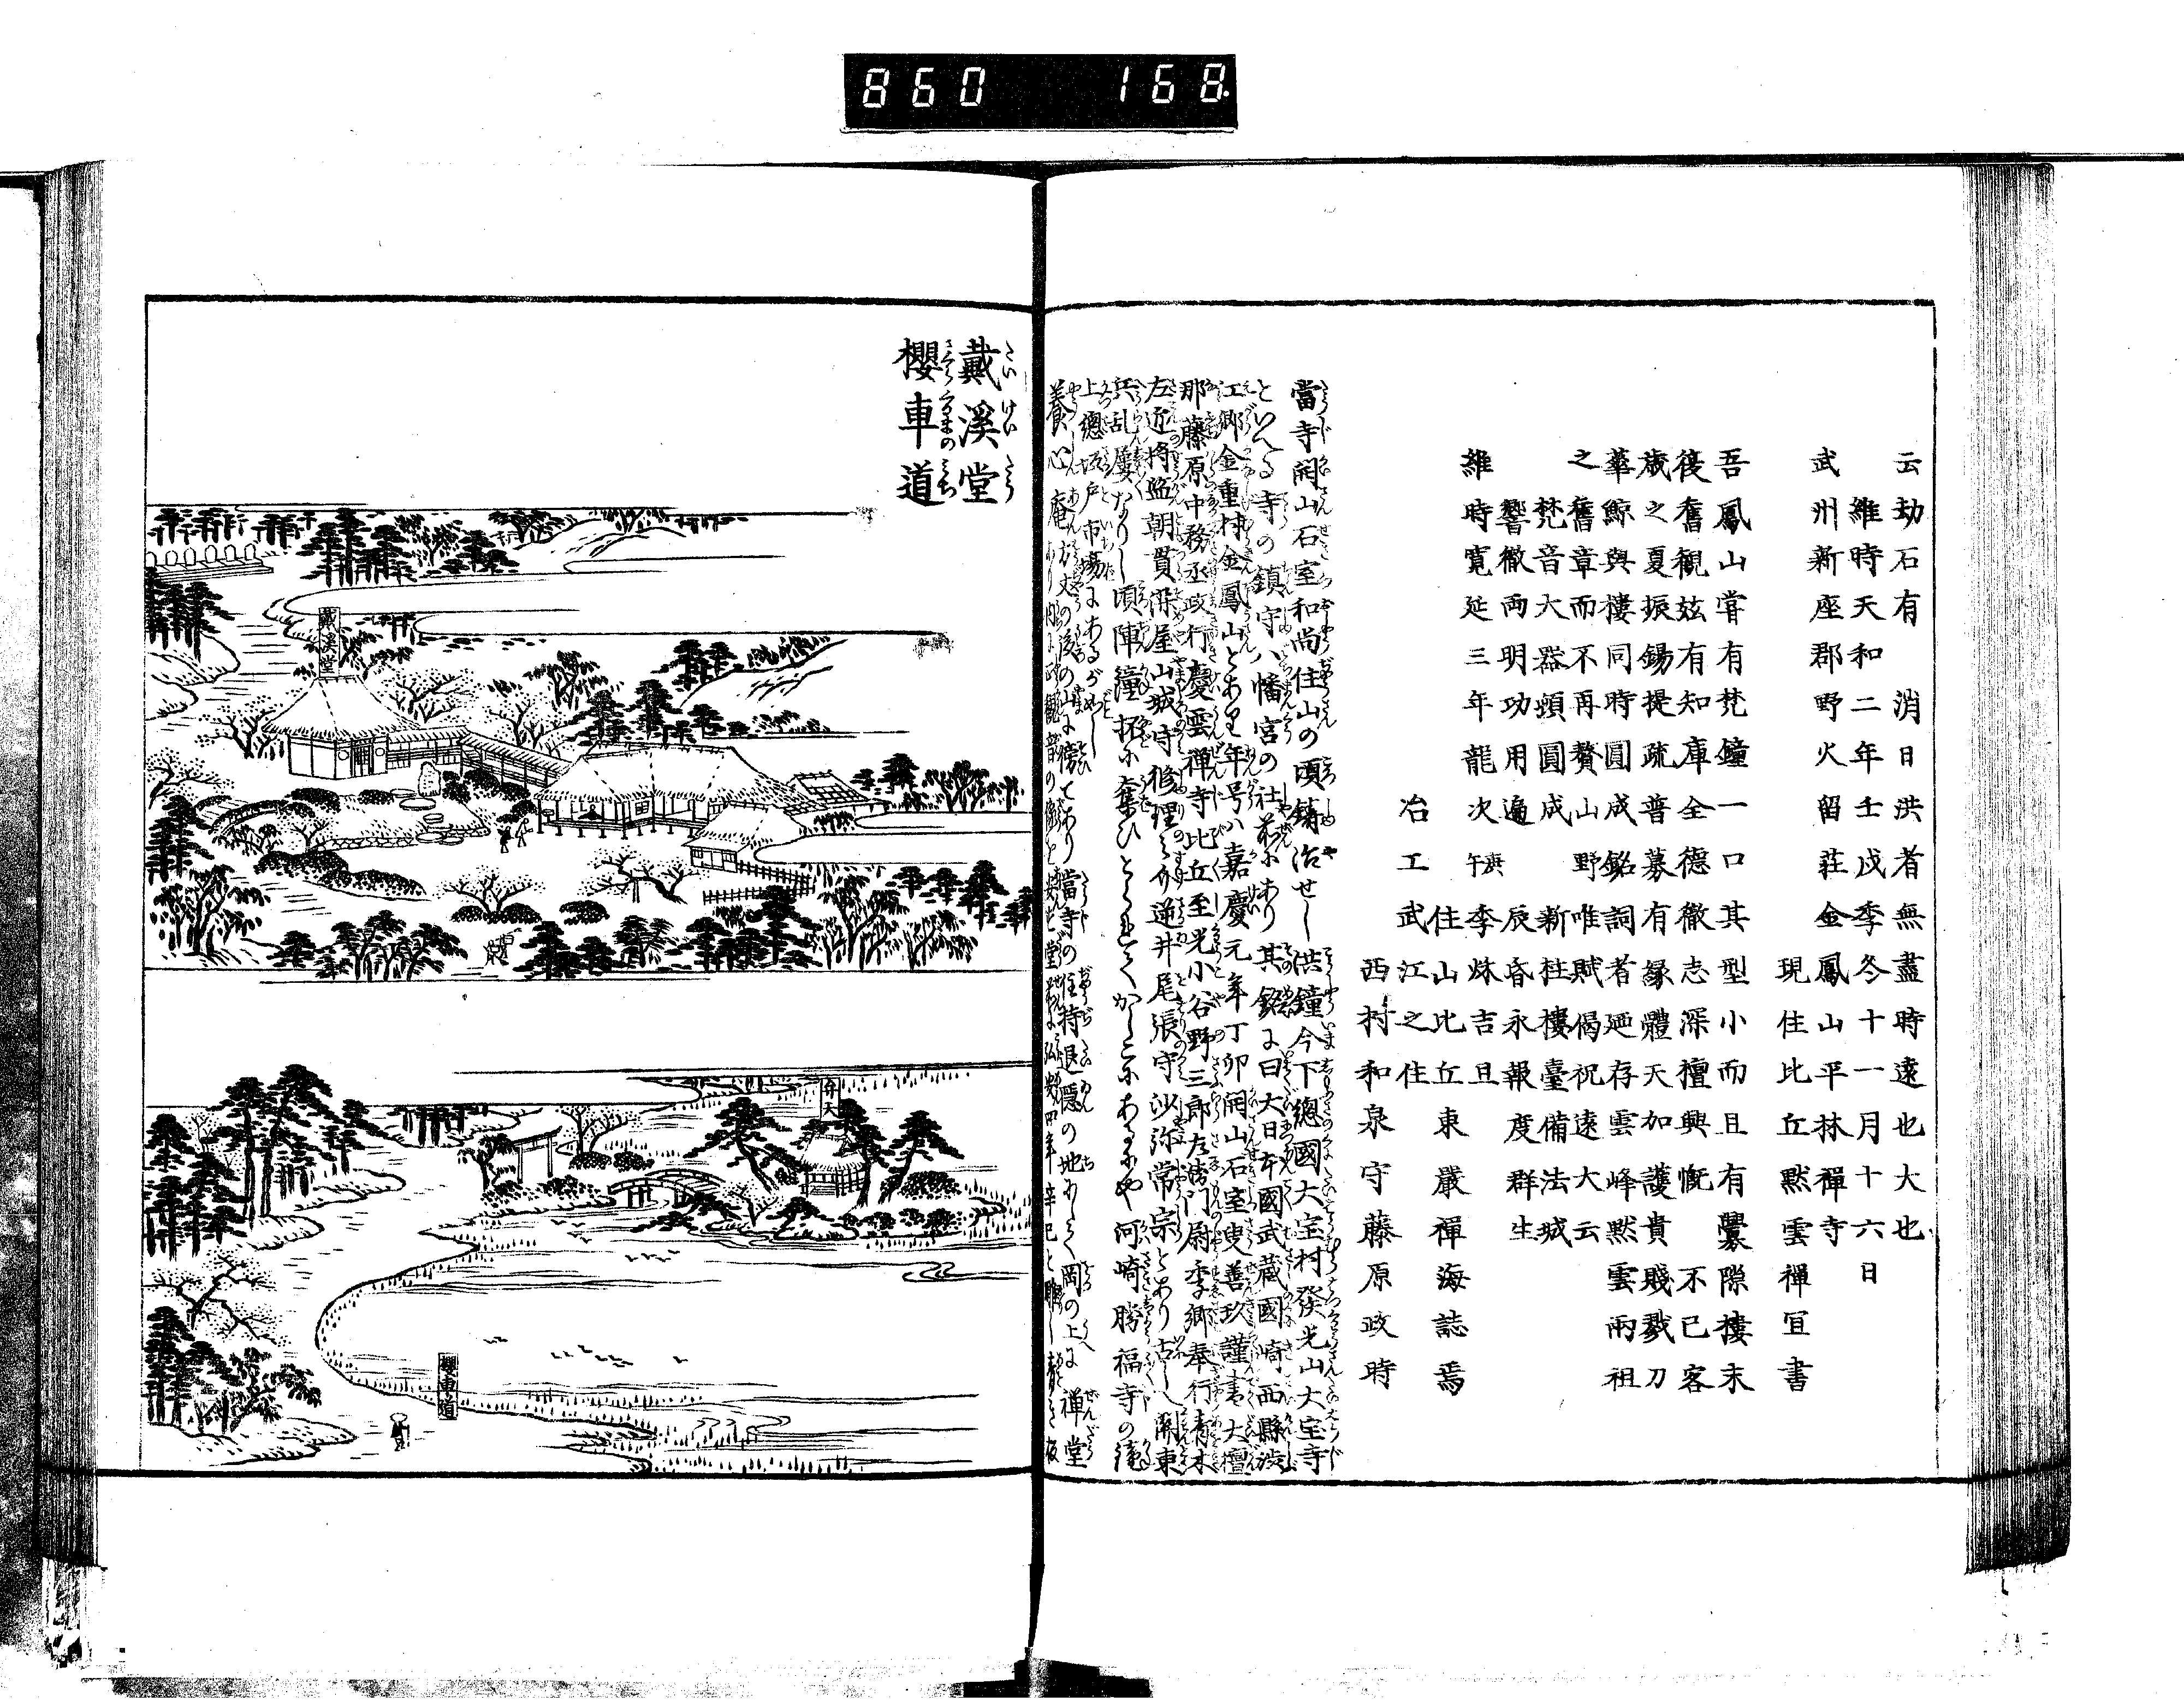 860 168
云劫石有消日洪者無盡時遠也大也
維時天和二年壬戌季冬十一月十六日
武州新座郡野火留荘金鳳山平林禪寺
現住比丘黙雲禪宜書
吾鳳山甞有梵鐘一口其型小而且有釁隙樓未
復舊觀玆有知庫全德徹志深檀興慨不已客
歳之夏振錫提疏普募有縁體天加護貴賤戮刀
華鯨與樓同時圓成銘詞者廼存雲峰黙雲兩祖
之舊章而不再贅山野唯賦偈祝遠大云
梵音大器頓圓成 新柱樓臺備法城
響徹兩明功用遍 辰昏永報度群生
維時寛延三年龍次庚午季秌吉旦
住山比丘東巖禪海誌焉
冶工 武江之住
西村和泉守藤原政時
當寺開山石室和尚住山の頃鋳冶せし洪鐘今下總國大宝村發光山大宝寺
といへる寺の鎮守八幡宮の社前にあり其銘に曰大日本國武蔵國崎西縣渋
江郷金重村金鳳山とあり年号ハ嘉慶元年丁卯開山石室叟善玖謹書大檀
那藤原中務丞政行慶雲禅寺比丘至光小谷野三郎左衛門尉季郷奉行青木
左近将監朝貫深屋山城守修理之介逆井尾張守沙弥常宗とあり古しへ関東
兵乱屢なりし頃陣鐘抔に奪ひとられてかしこにあるにや河崎勝福寺の鐘
上總坂戸市場にあるがごとし
戴溪堂
櫻車道
戴溪堂
弁天
櫻車道